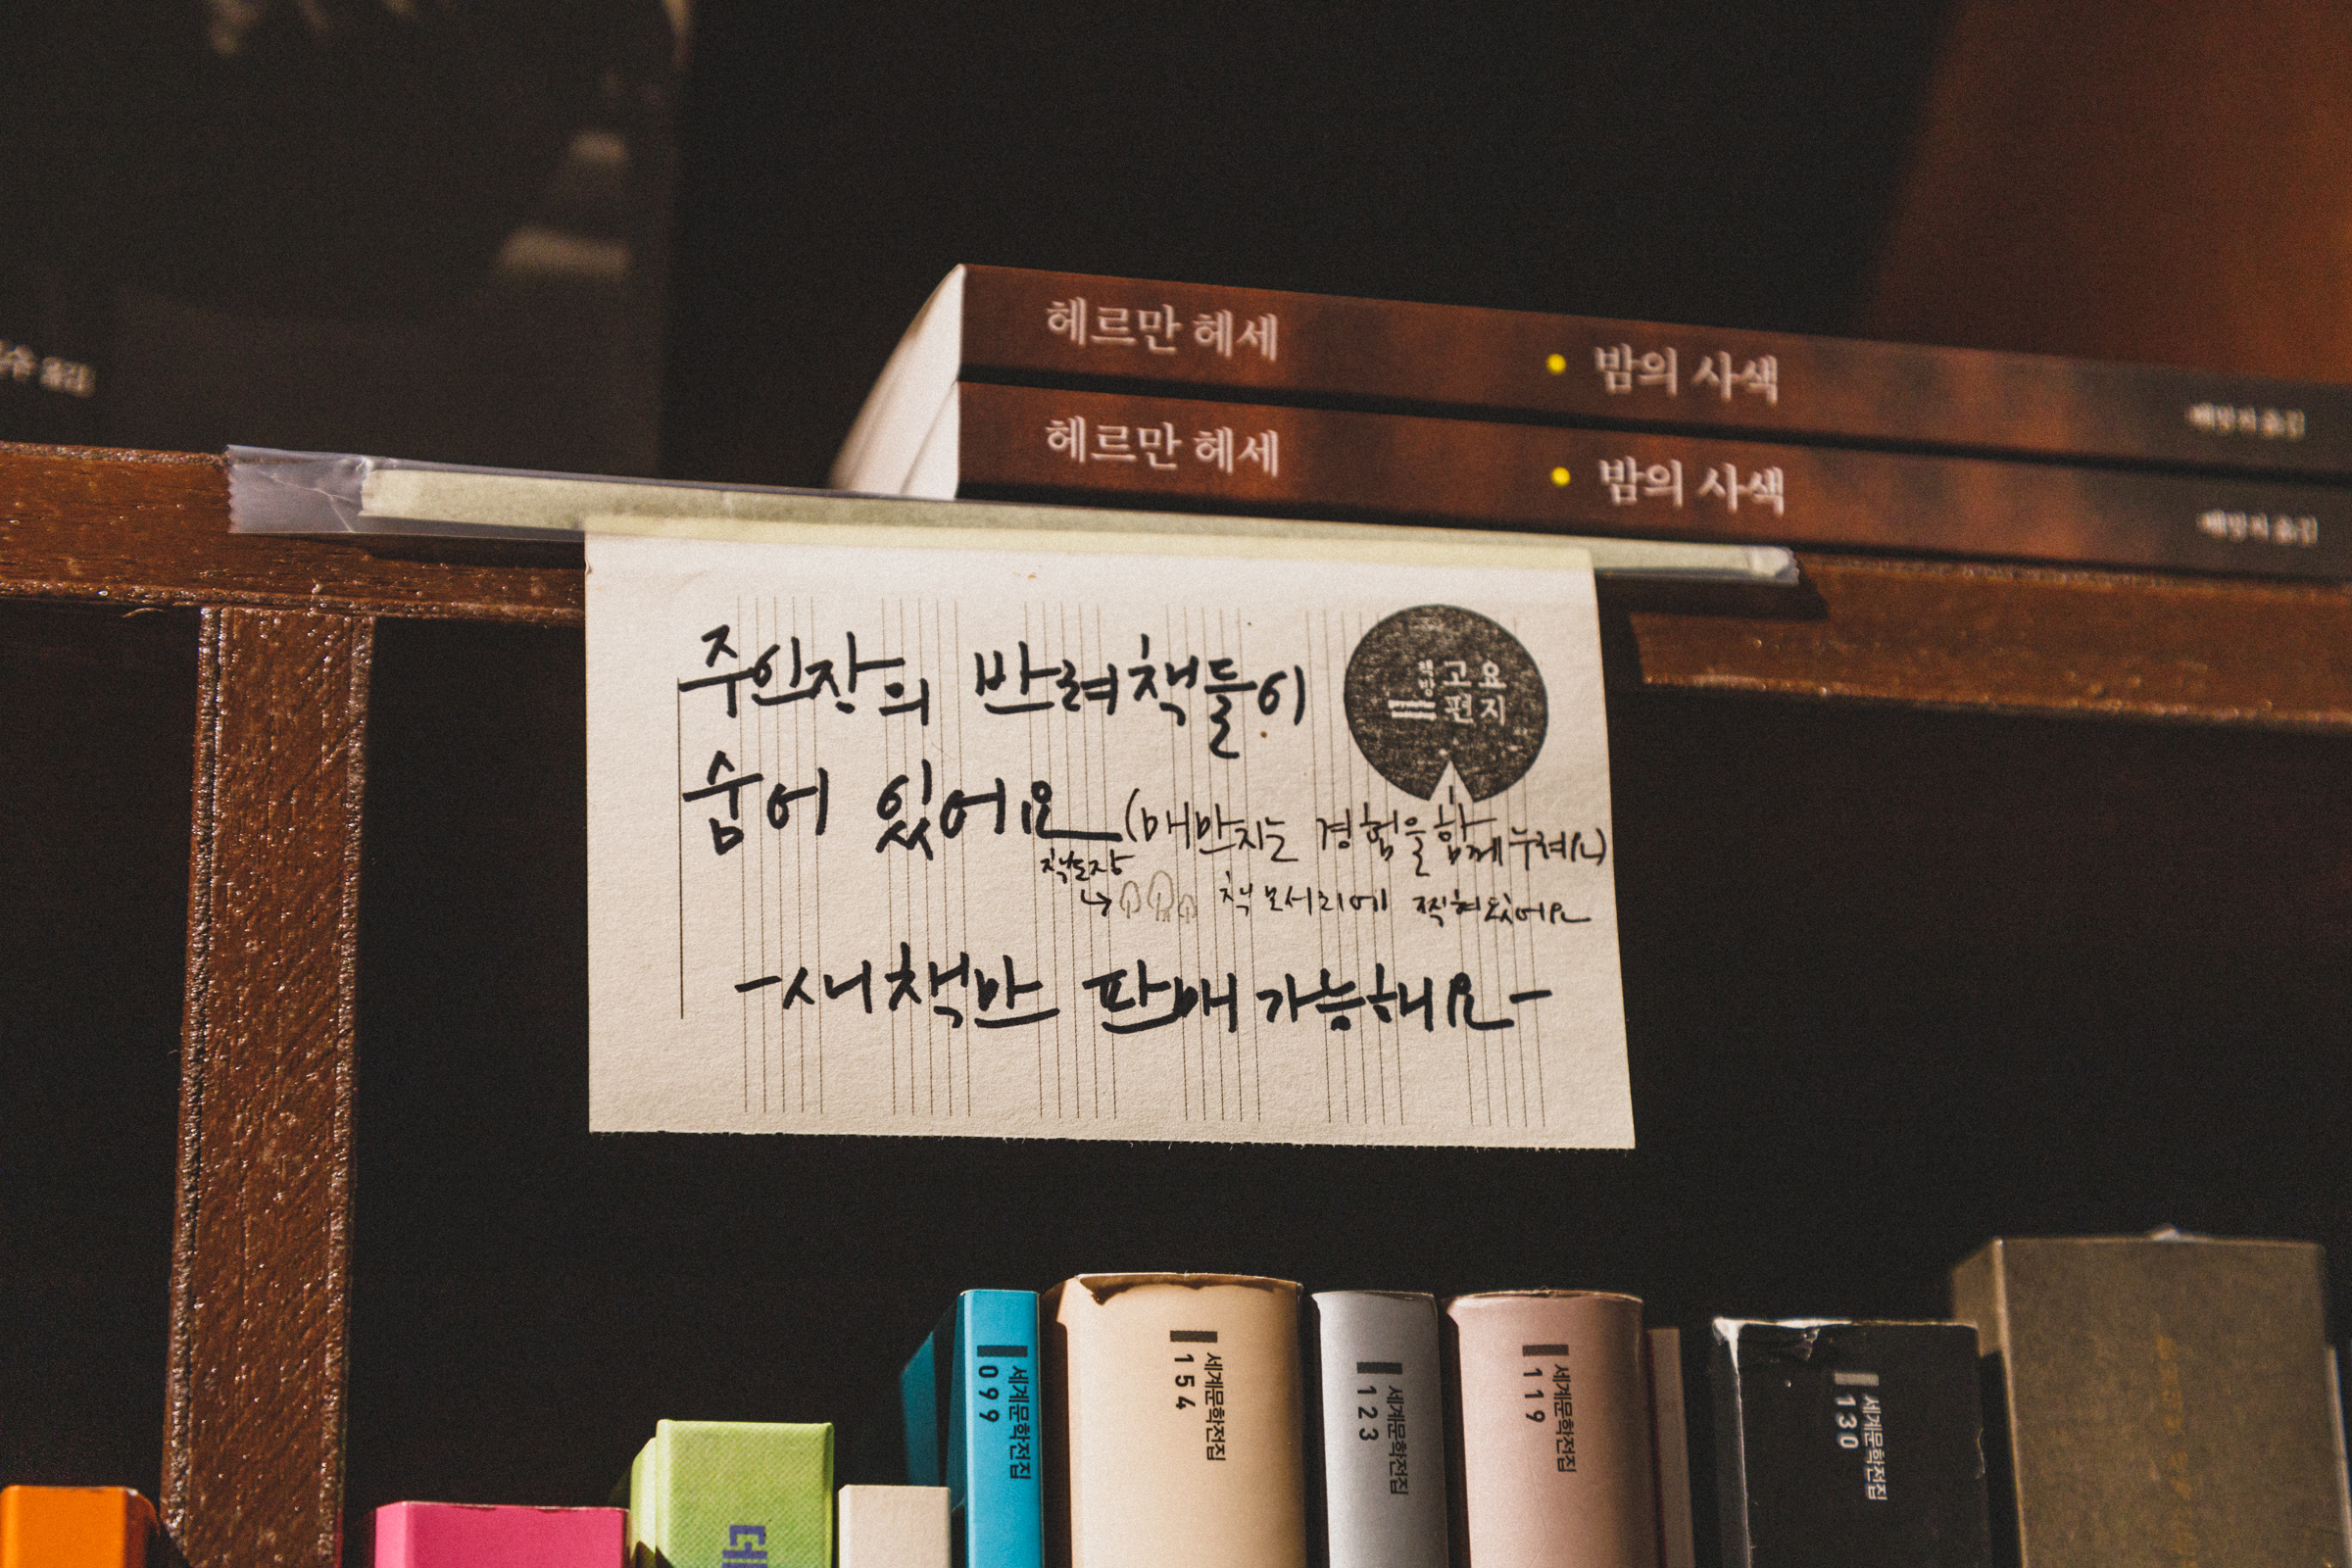 옮김
헤르만 헤세 밤의 사색
헤르만 헤세 밤의 사색
주인장의 반려책들이
고요
편지
숨어 있어요 (매만지는 경험을 함께 누려요)
책도장
→ 책 모서리에 찍혀있어요
-새책만 판매 가능해요-
세계문학전집
099
세계문학전집
154
세계문학전집
123
세계문학전집
119
세계문학전집
130
데